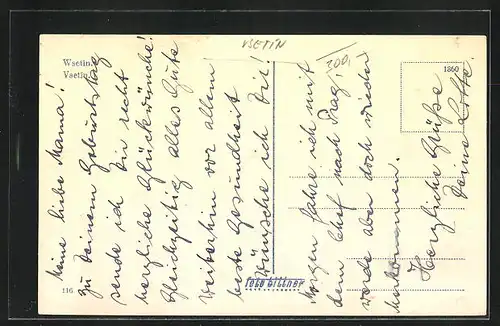 Wsetin.
Vsetín.
VSETÍN
200,
1860
Meine liebe Mama!
Zu Deinem Geburtstag
sende ich Dir recht
herzliche Glückwünsche!
Gleichzeitig alles Gute
weiterhin vor allem
beste Gesundheit
wünsche ich Dir!
Morgen fahre ich mit
dem Chef nach Prag,
werde aber doch wieder
herkommen.
Herzliche Grüße
Deine Lotte.
116